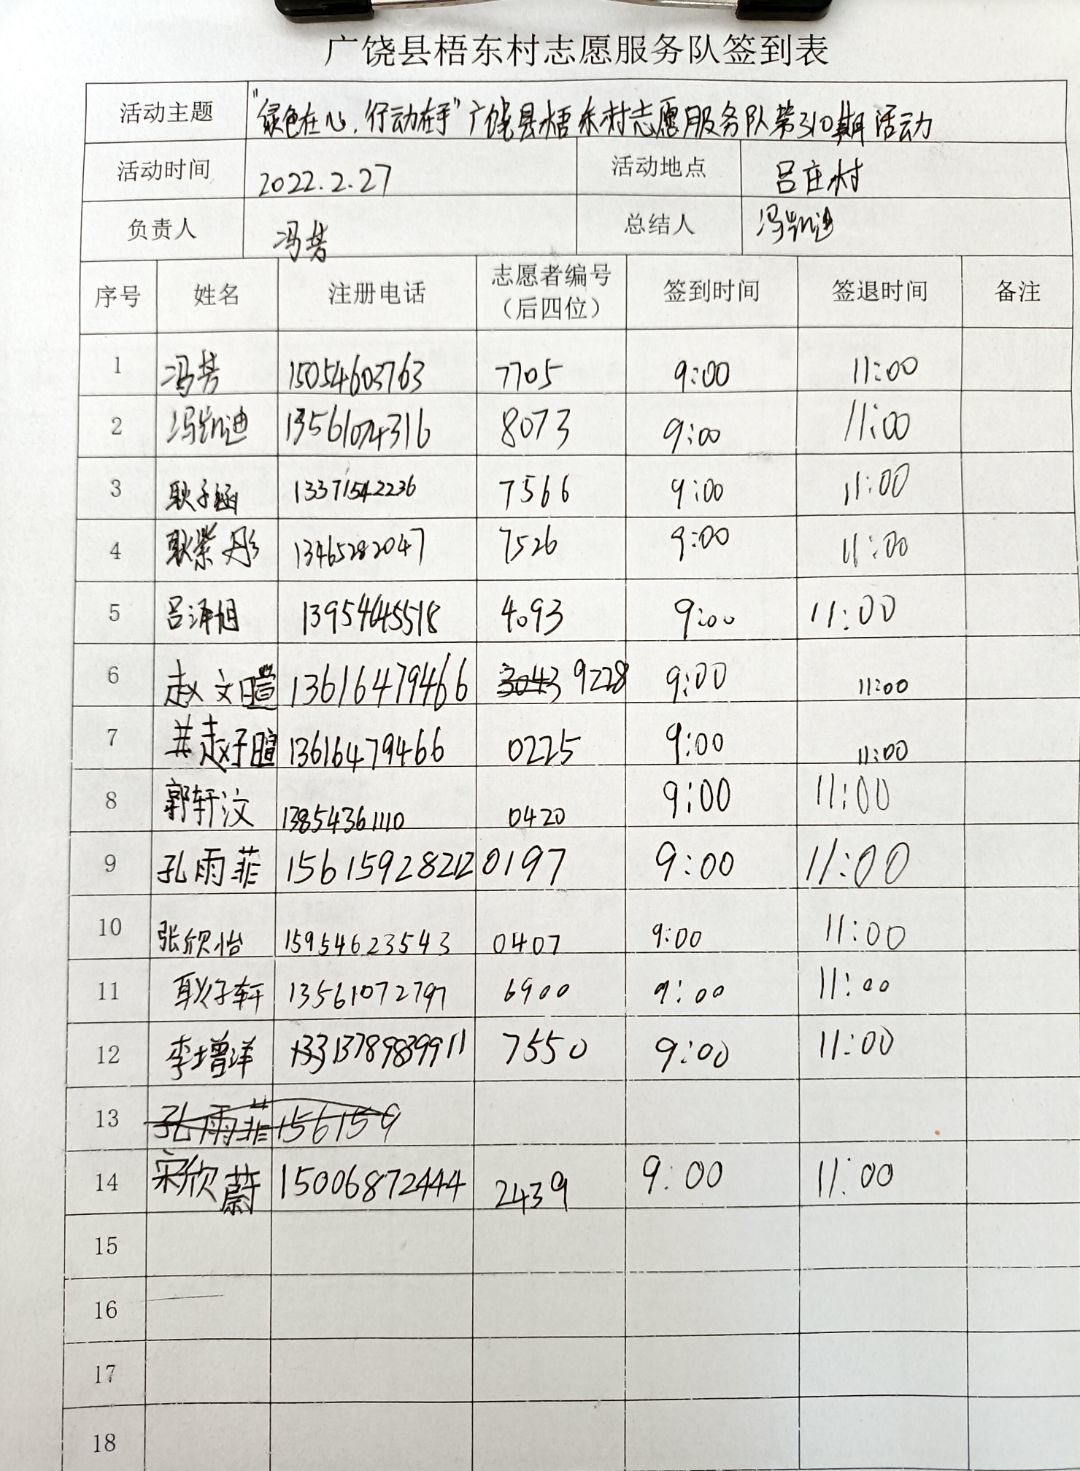 广饶县梧东村志愿服务队签到表
活动主题 "绿色在心,行动在手"广饶县梧东村志愿服务队第310期活动
活动时间 2022.2.27 活动地点 吕庄村
负责人 冯芳 总结人 冯凯迪
序号 姓名 注册电话 志愿者编号（后四位） 签到时间 签退时间 备注
1 冯芳 15054603763 7705 9:00 11:00
2 冯凯迪 13561074316 8073 9:00 11:00
3 耿子涵 13371542236 7566 9:00 11:00
4 耿紫彤 13465282047 7526 9:00 11:00
5 吕泽旭 13954645518 4093 9:00 11:00
6 赵文暄 13616479466 3043 9228 9:00 11:00
7 赵子暄 13616479466 0225 9:00 11:00
8 郭轩汶 13854361110 0420 9:00 11:00
9 孔雨菲 15615928212 0197 9:00 11:00
10 张欣怡 15954623543 0407 9:00 11:00
11 耿子轩 13561072797 6900 9:00 11:00
12 李增洋 7550 9:00 11:00
13 孔雨菲 156159
14 宋欣蔚 15006872444 2439 9:00 11:00
15
16
17
18